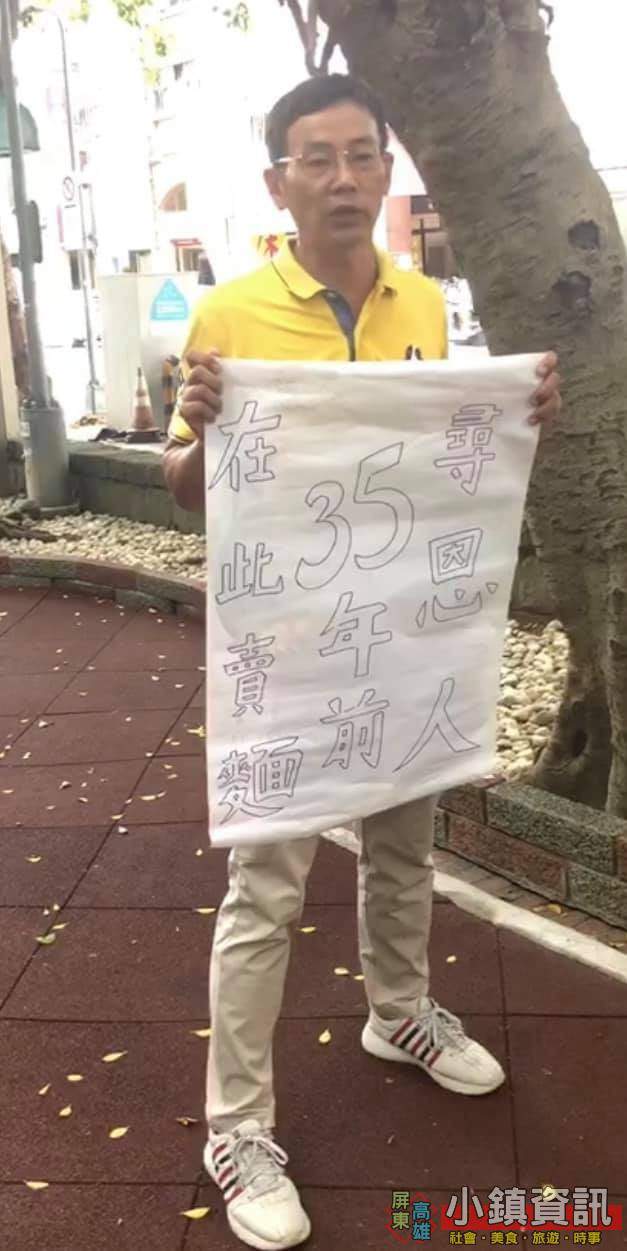 尋恩人
35年前
在此賣麵
屏東
高雄
小鎮資訊
社會·美食·旅遊·時事